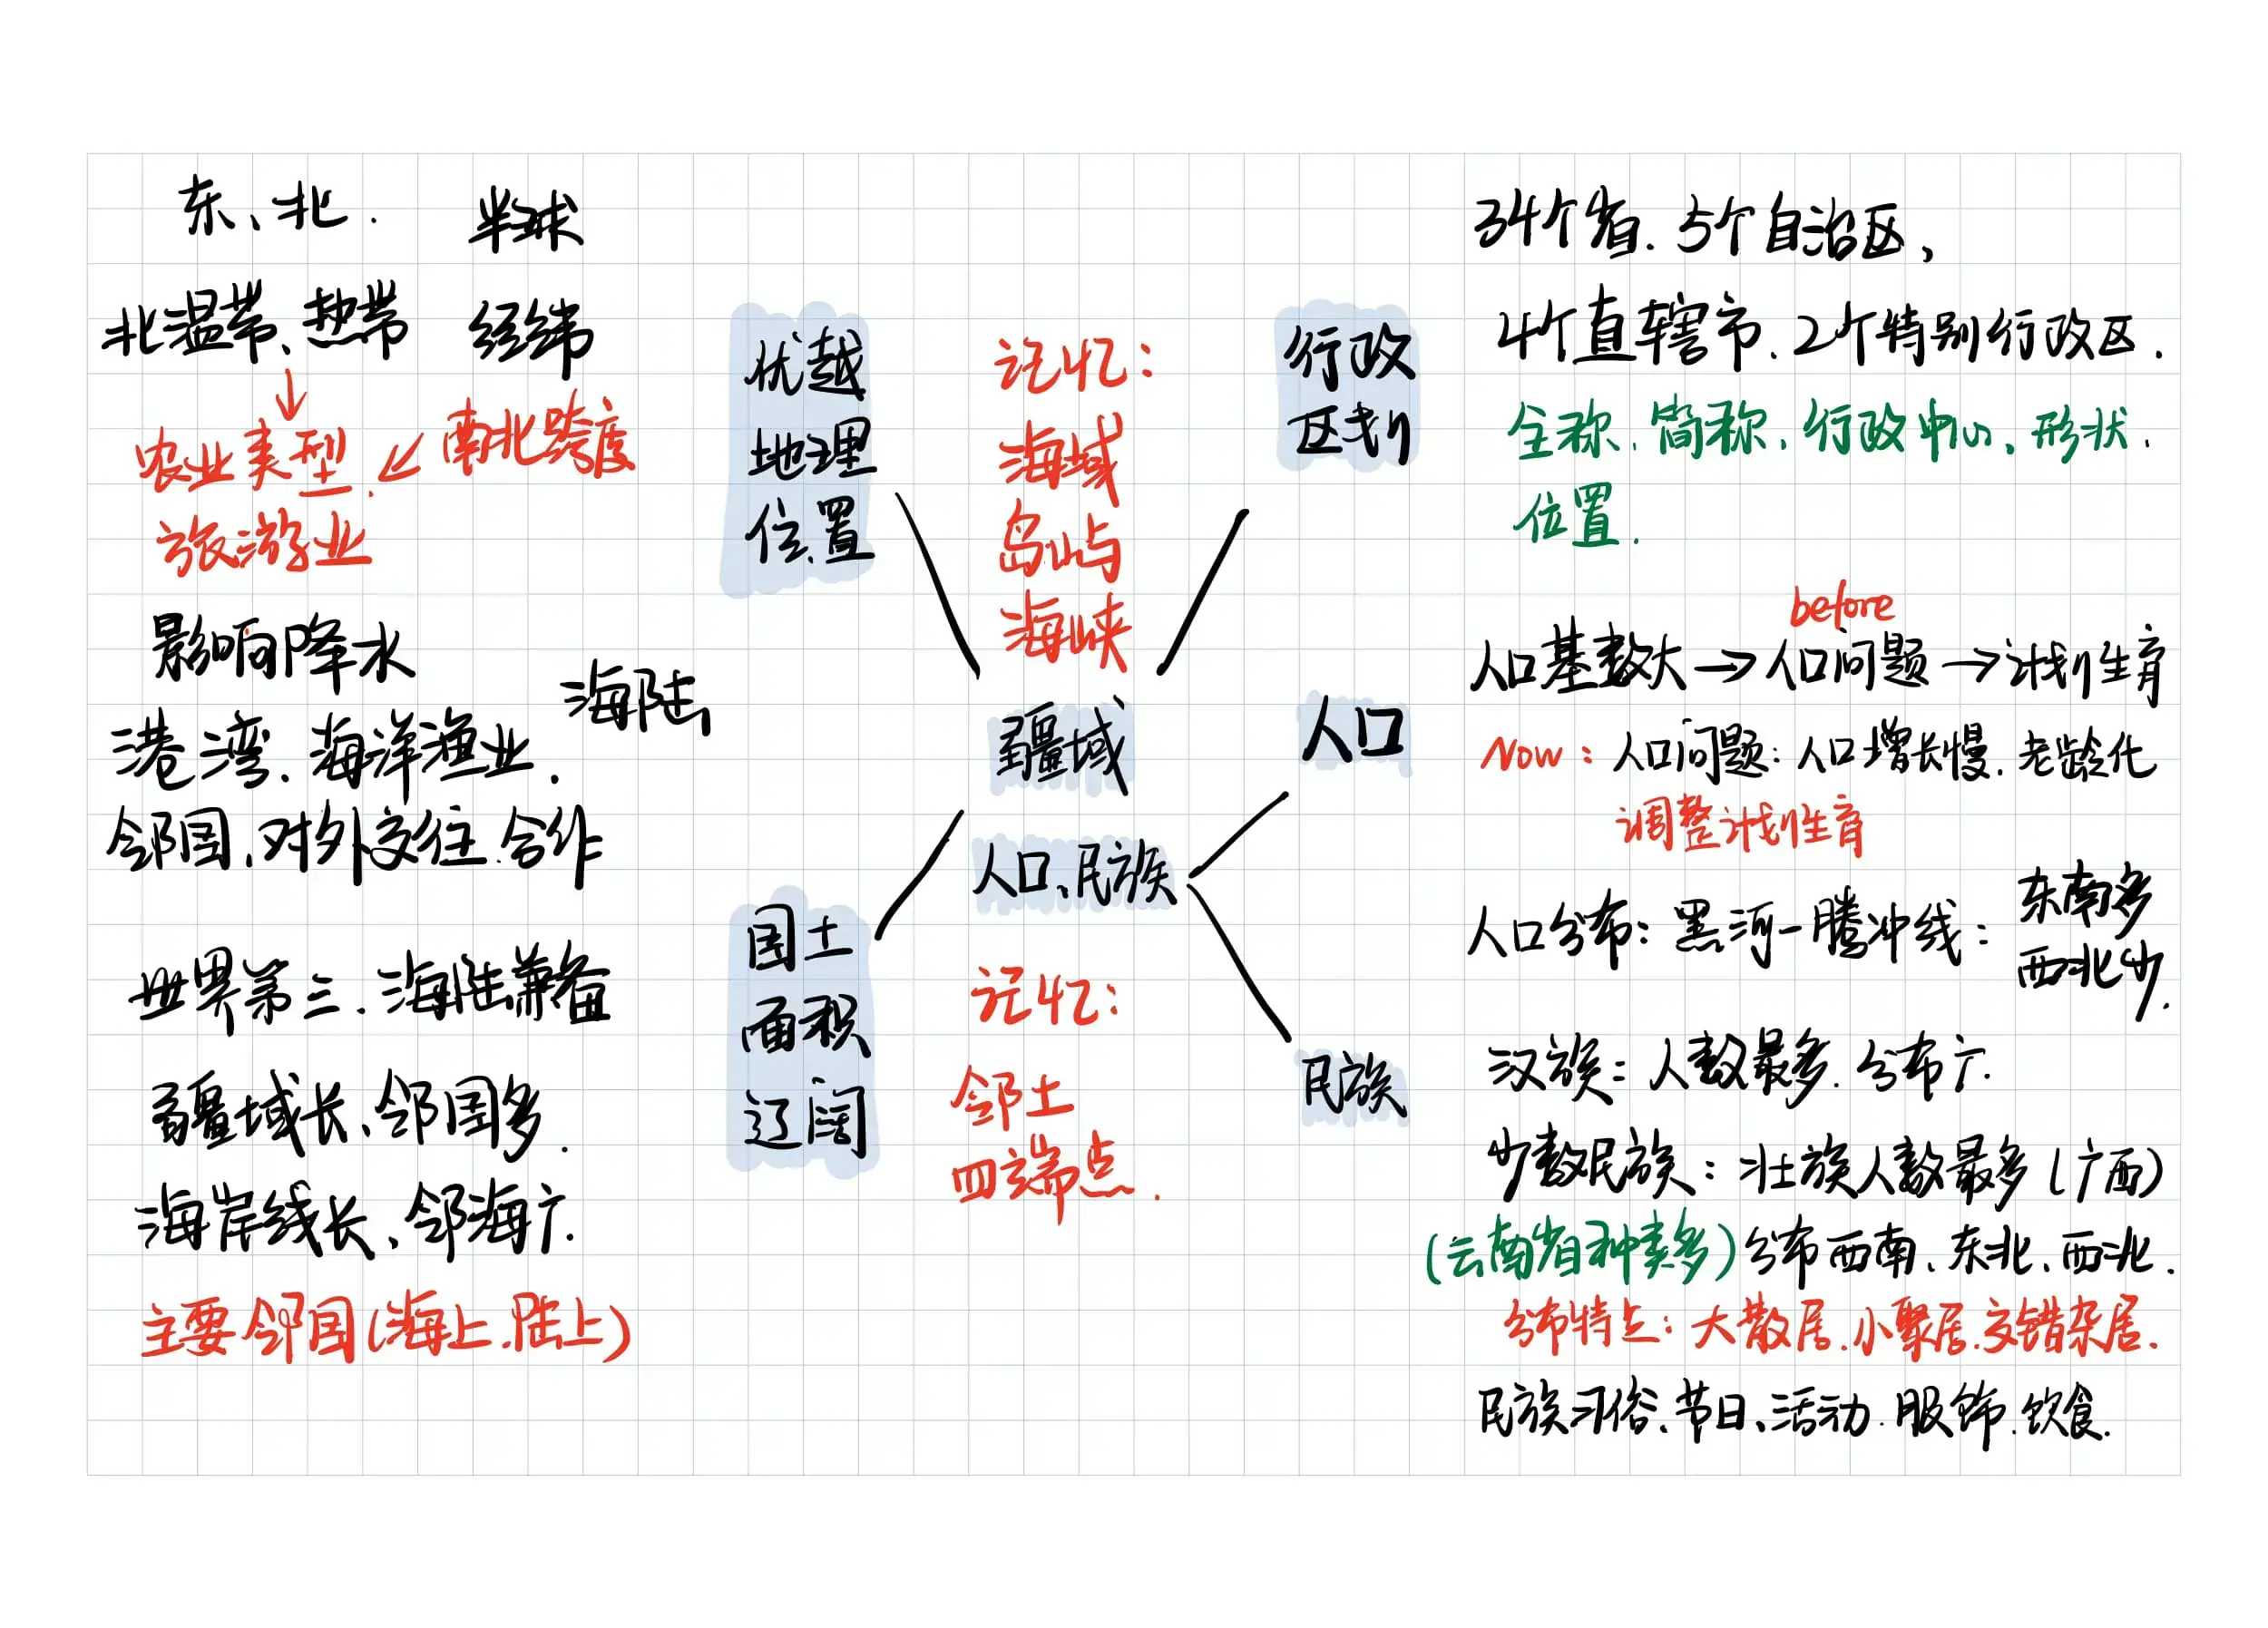 东、北.
半球
北温带、热带
经纬
农业类型.
南北跨度
旅游业
影响降水
海陆
港湾.海洋渔业.
邻国.对外交往.合作
优越
地理
位置
国土
面积
辽阔
世界第三.海陆兼备
疆域长、邻国多.
海岸线长、邻海广.
主要邻国(海上.陆上)
记忆:
海域
岛屿与
海峡
疆域
人口、民族
记忆:
邻土
四端点.
行政
区划
34个省.5个自治区,
4个直辖市.2个特别行政区.
全称.简称.行政中心.形状.
位置.
人口
before
人口基数大→人口问题→计划生育
Now:人口问题:人口增长慢.老龄化
调整计划生育
人口分布:黑河一腾冲线:
东南多
西北少.
民族
汉族:人数最多.分布广.
少数民族:壮族人数最多(广西)
(云南省种类多)分布西南、东北、西北.
分布特点:大散居.小聚居.交错杂居.
民族习俗.节日、活动.服饰.饮食.